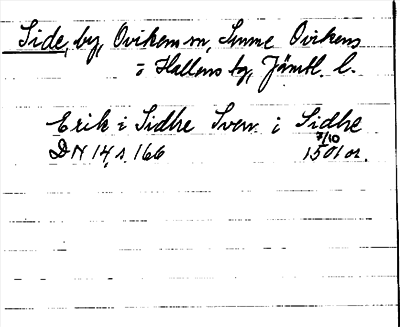 Side, by, Ovikens sn, Sunne Ovikens
o Hallens tg, Jämtl. l.
Erik i Sidhe Sven i Sidhe
DN 14, s. 166 7/10 1501 or.